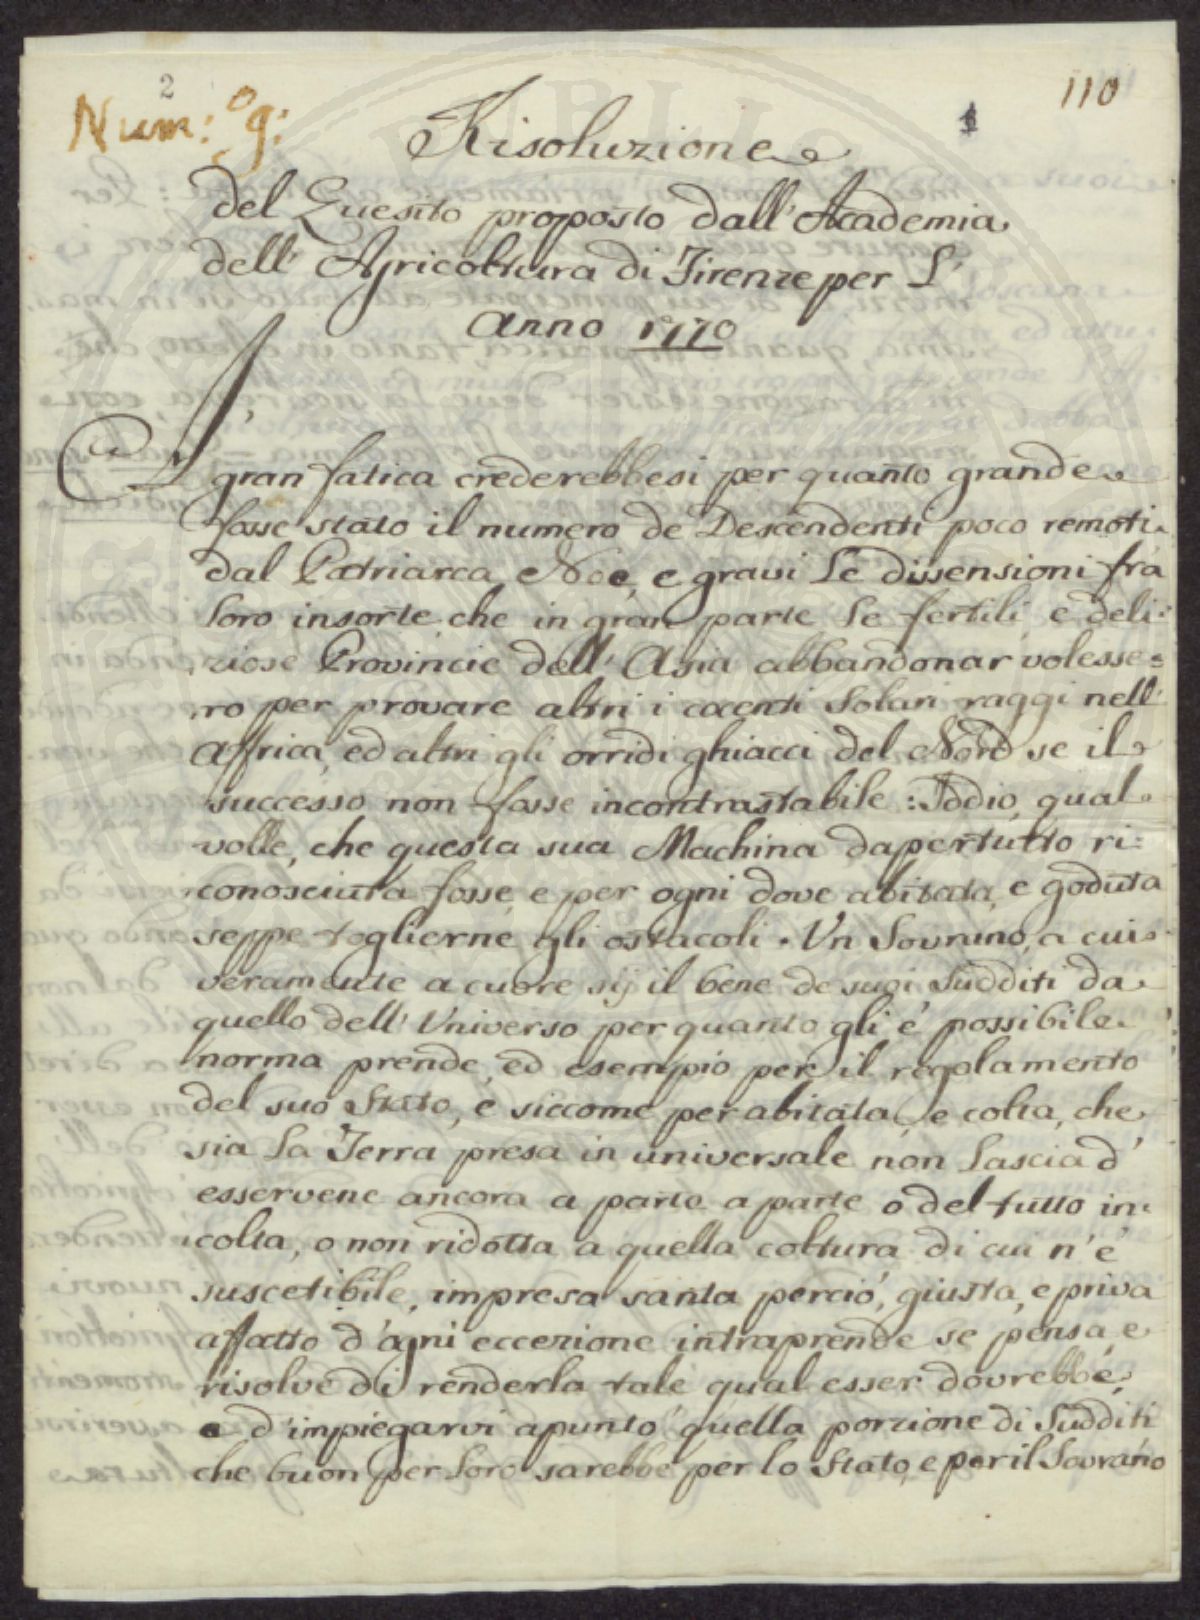 2
Num:º 9:
1
110
Risoluzione
del Quesito proposto dall' Academia
dell' Agricoltura di Firenze per L'
Anno 1770
Di gran fatica crederebbesi per quanto grande
fosse stato il numero de Descendenti poco remoti
dal Patriarca Noe, e gravi le dissensioni frà
loro insorte, che in gran parte le fertili, e deli:
ziose Provincie dell' Asia abbandonar volesse=
ro per provare altri i cocenti solari raggi nell'
Affrica, ed altri gli orridi ghiacci del Nord se il
successo non fosse incontrastabile: Iddio, qual
volle, che questa sua Machina dapertutto ri:
conosciuta fosse, e per ogni dove abitata, e goduta
seppe toglierne gli ostacoli. Un Sovrano, a cui
veramente a cuore sij il bene de suoi Sudditi da
quello dell' Universo per quanto gli è possibile
norma prende, ed esempio per il regolamento
del suo Stato, e siccome per abitata, e colta, che
sia la Terra presa in universale non lascia d'
esservene ancora a parte a parte o del tutto in:
colta, o non ridotta a quella coltura di cui n'è
suscetibile, impresa santa perciò, giusta, e priva
affatto d'ogni eccezione intraprende se pensa, e
risolve di renderla tale qual esser dovrebbe,
e d'impiegarvi apunto quella porzione di Sudditi
che buon per loro sarebbe per lo Stato, e per il Sovrano